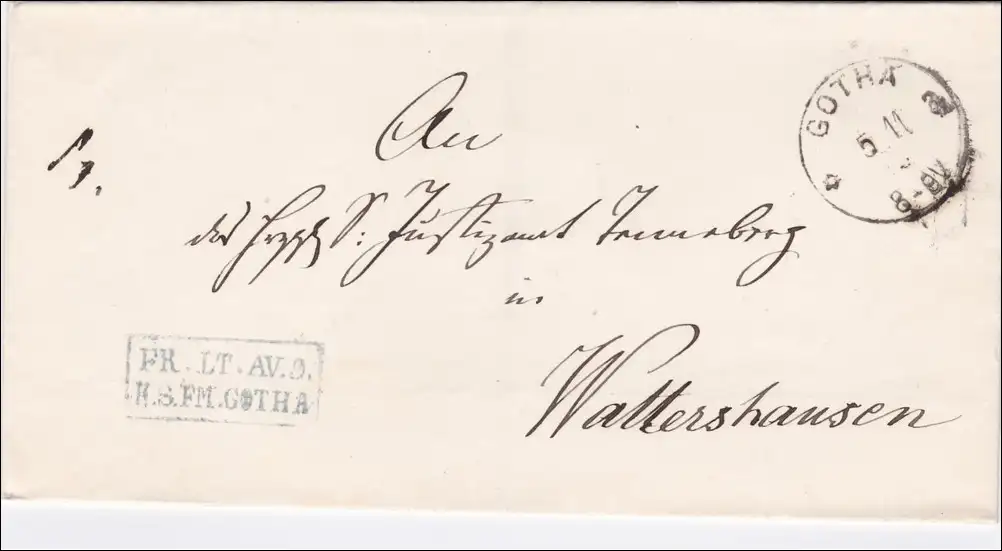 GOTHA
5 11
8-9V
An
das Herzogl. S. Justizamt Tenneberg
in
Waltershausen
FR. LT. AV. 9.
H.S.FM.GOTHA